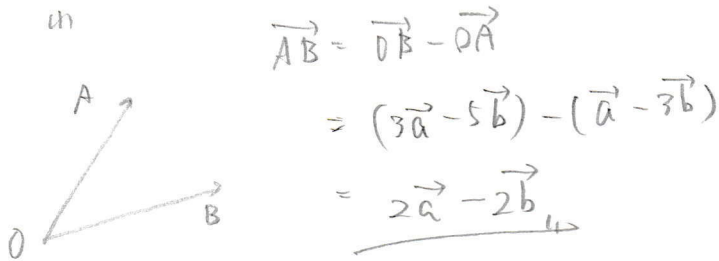 (1)
A
B
O
$\overrightarrow{AB} = \overrightarrow{OB} - \overrightarrow{OA}$
$= (3\vec{a} - 5\vec{b}) - (\vec{a} - 3\vec{b})$
$= 2\vec{a} - 2\vec{b}$